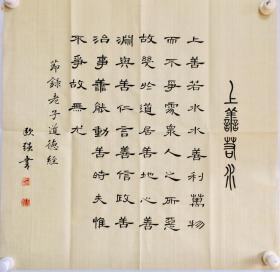 上善若水
上善若水水善利萬物
而不爭處衆人之所惡
故幾於道居善地心善
淵與善仁言善信政善
治事善能動善時夫惟
不爭故無尤
節録老子道德經
書